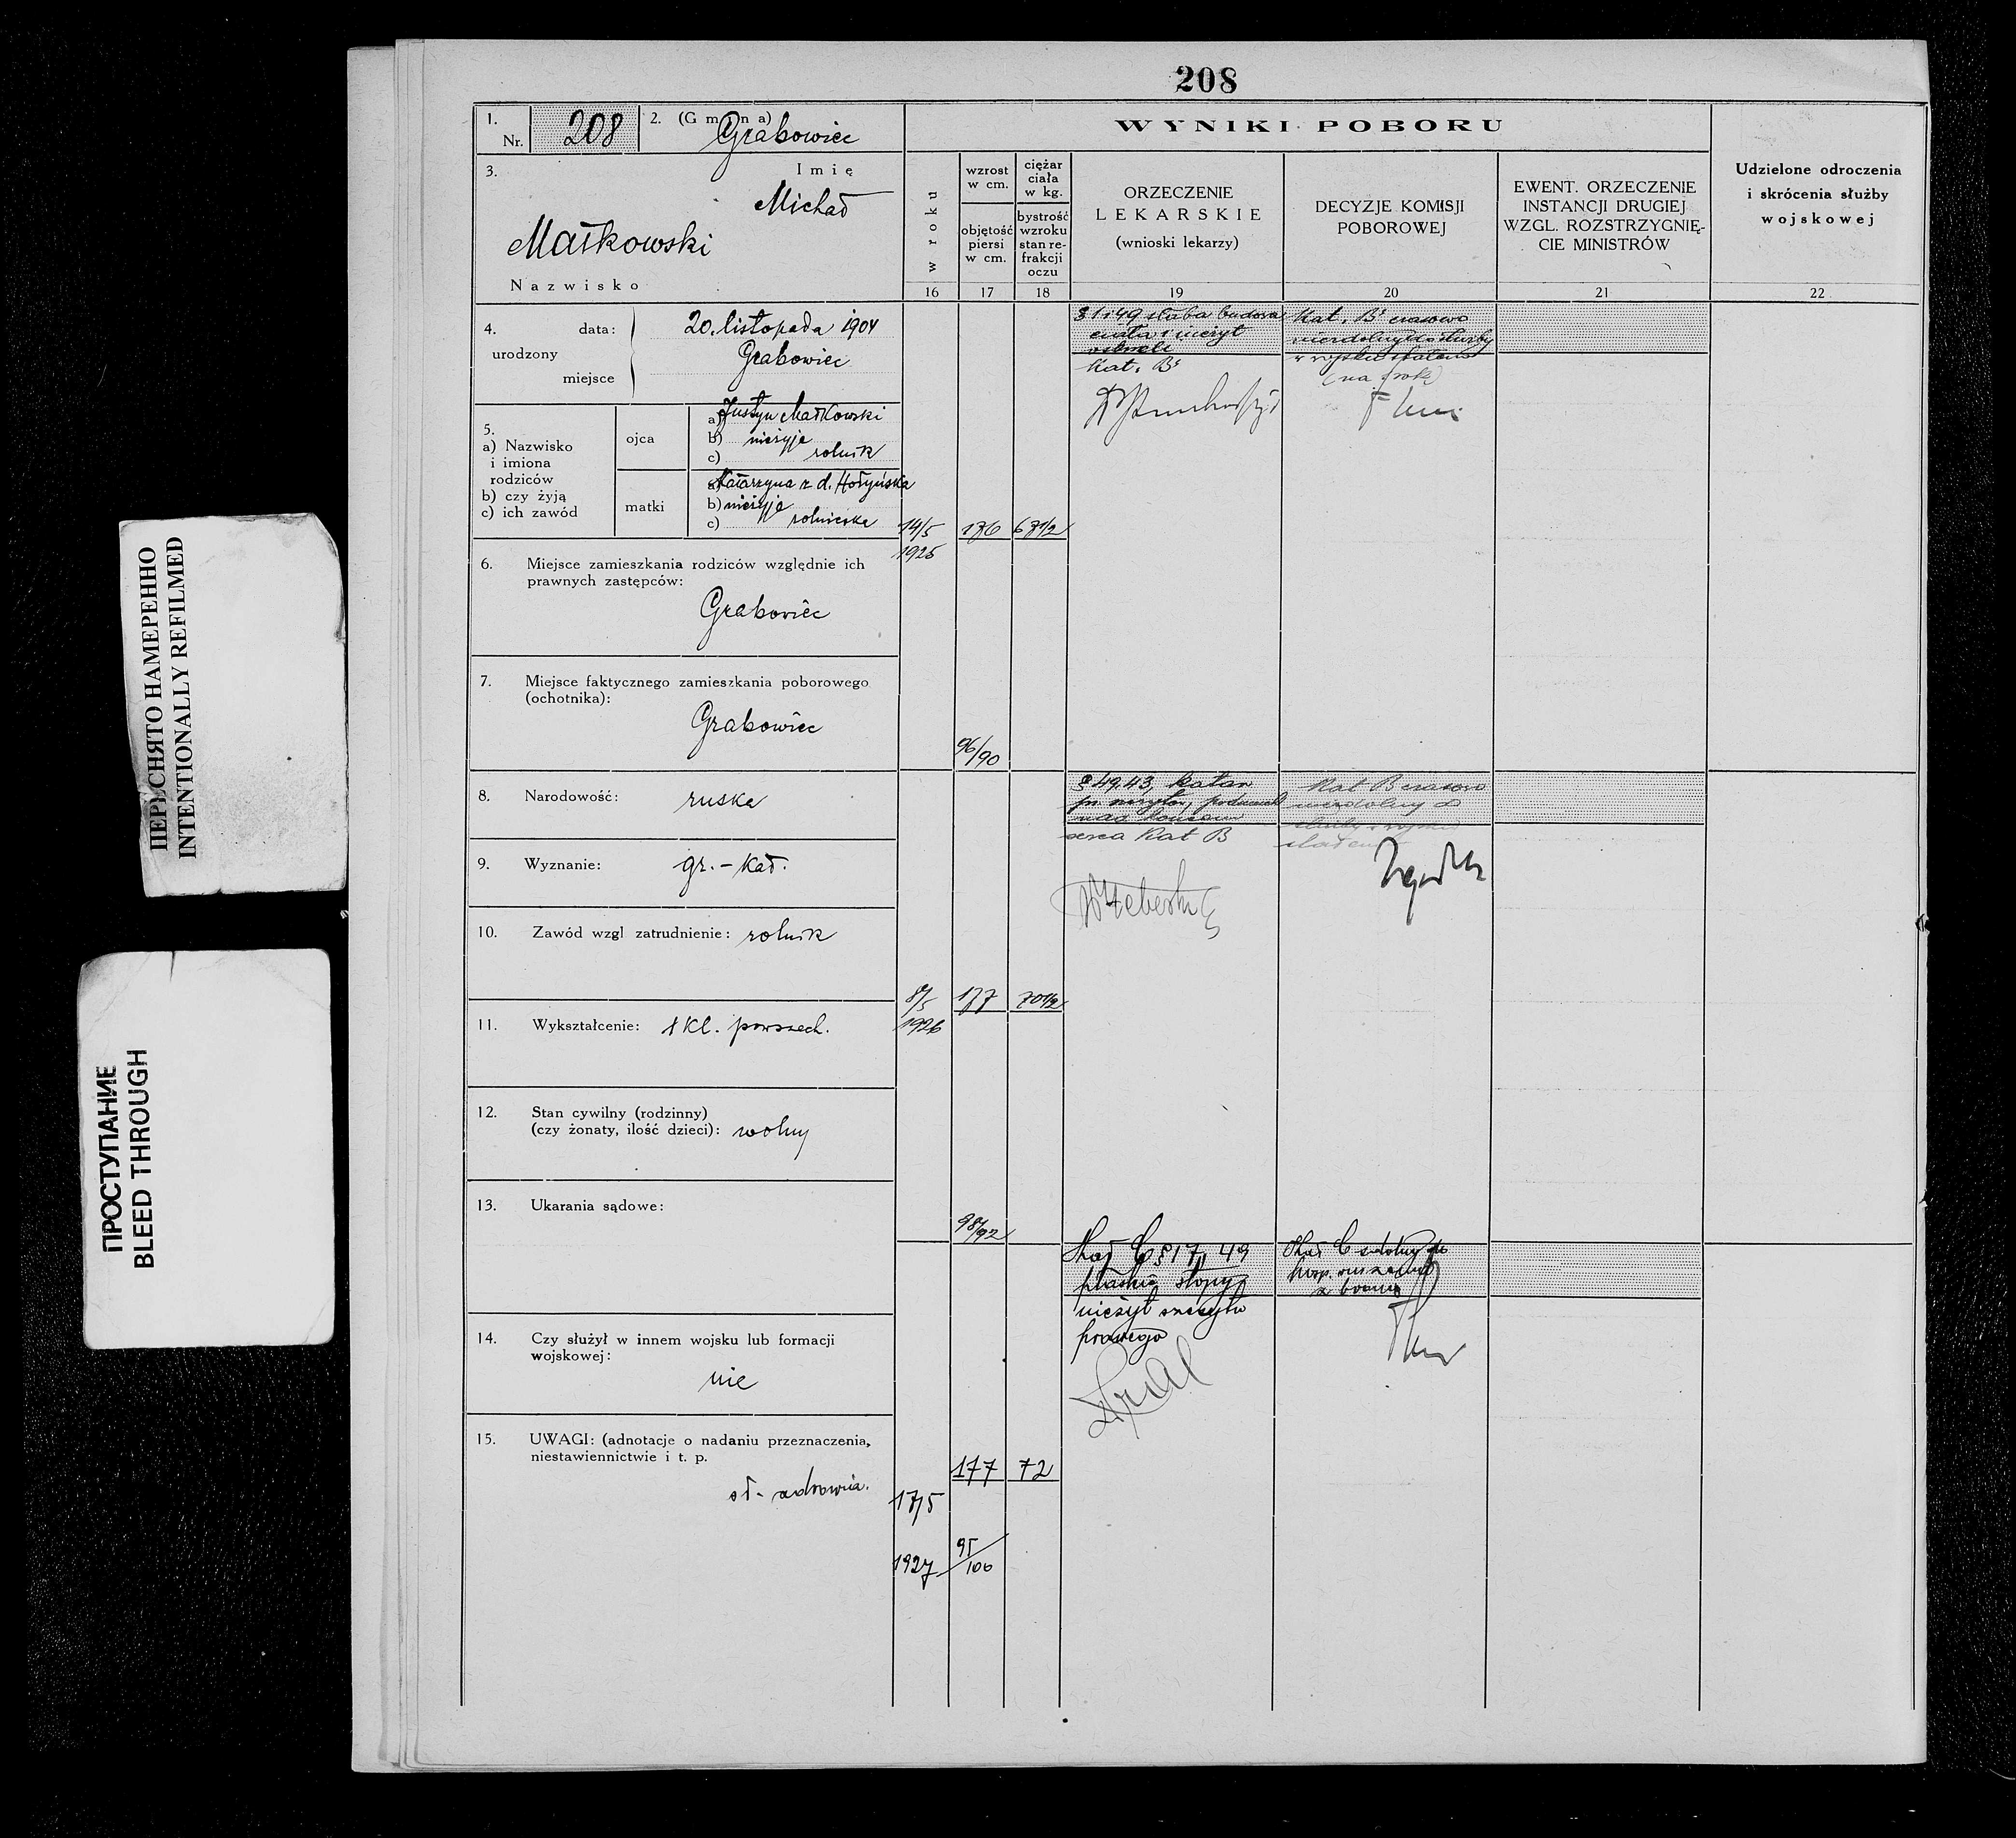 208
1. Nr. 208
2. (Gmina) Grabowiec
3. Imię
Michał
Małkowski
Nazwisko
4. urodzony
data: 20. listopada 1904
miejsce Grabowiec
5.
a) Nazwisko
i imiona
rodziców
b) czy żyją
c) ich zawód
ojca
a) Justyn Małkowski
b) nieżyje
c) rolnik
matki
a) Katarzyna z d. Hołyńska
b) nieżyje
c) rolniczka
6. Miejsce zamieszkania rodziców względnie ich
prawnych zastępców:
Grabowiec
7. Miejsce faktycznego zamieszkania poborowego
(ochotnika):
Grabowiec
8. Narodowość: ruska
9. Wyznanie: gr.-kat.
10. Zawód wzgl zatrudnienie: rolnik
11. Wykształcenie: 1 kl. powszech.
12. Stan cywilny (rodzinny)
(czy żonaty, ilość dzieci): wolny
13. Ukarania sądowe:
14. Czy służył w innem wojsku lub formacji
wojskowej:
nie
15. UWAGI: (adnotacje o nadaniu przeznaczenia,
niestawiennictwie i t. p.
zdrowia.
WYNIKI POBORU
w roku
16
wzrost
w cm.
objętość
piersi
w cm.
17
ciężar
ciała
w kg.
bystrość
wzroku
stan re-
frakcji
oczu
18
ORZECZENIE
LEKARSKIE
(wnioski lekarzy)
19
DECYZJE KOMISJI
POBOROWEJ
20
EWENT. ORZECZENIE
INSTANCJI DRUGIEJ
WZGL. ROZSTRZYGNIĘ-
CIE MINISTRÓW
21
Udzielone odroczenia
i skrócenia służby
wojskowej
22
14/5
1925
176
67 1/2
96/90
słaba budowa
ciała i nieżyt
Kat. B
Kat. B czasowo
niezdolny do służby
w wojsku stałem
(na rok)
8/5
1926
177
70 1/2
98/92
§ 49, 43, katar
serca Kat B
Kat B czasowo
niezdolny do
służby w wojsku
stałem
17/5
1927
177
72
95/100
Kat C § 17, 49
płaskie stopy,
nieżyt szczytu
prawego
Kat C zdolny do
posp. ruszenia
z bronią
ПЕРЕСНЯТО НАМЕРЕННО
INTENTIONALLY REFILMED
ПРОСТУПАНИЕ
BLEED THROUGH